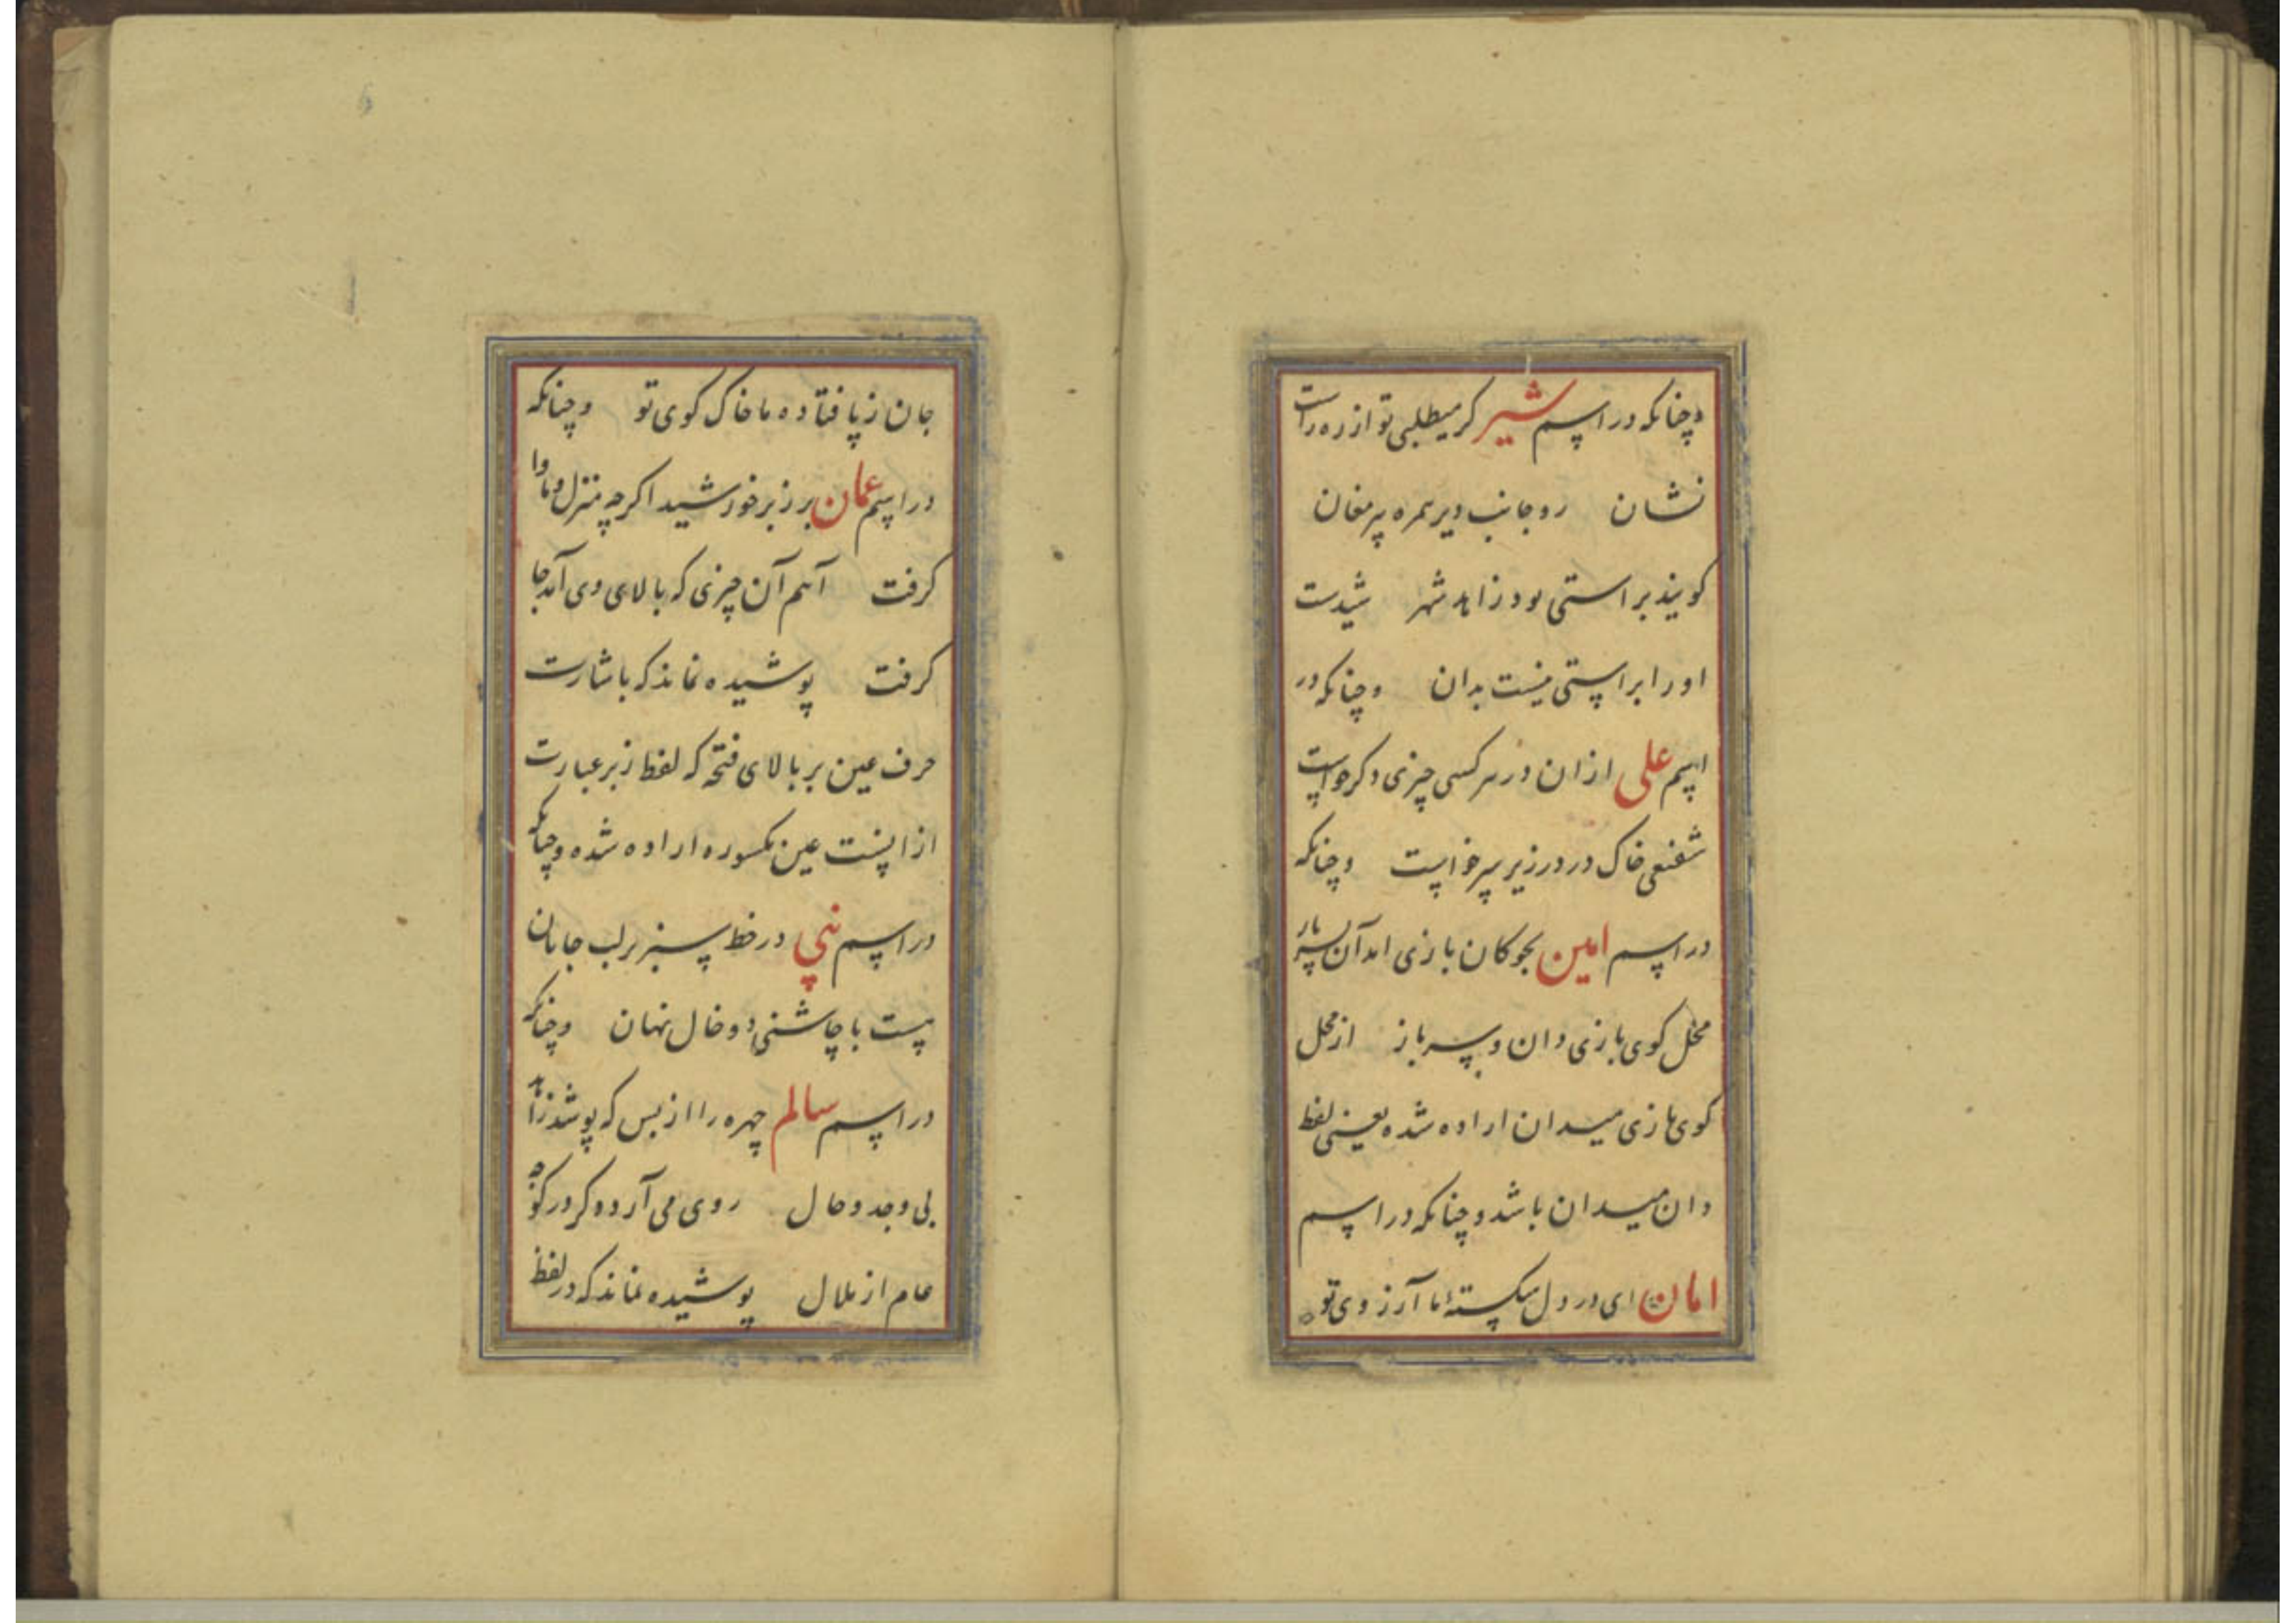 وچنانکه در اسم شیر کر میطلبی تو از ره راست
نشان روجانب دیر همره پیر مغان
کویند براستی بود زاهد شهر شیدست
اورا براستی نیست بدان وچنانکه در
اسم علی ازان در هر کسی چیزی دکر خواست
شفیعی خاک در در زیر سر خواست وچنانکه
در اسم امین بجوکان بازی امد آن
محل کوی بازی دان وسر باز از محل
کوی بازی میدان اراده شده یعنی لفظ
دان میدان باشد وچنانکه در اسم
امان ای در دل شکستۀ ما آرزوی تو
جان ز پا فتاده ما خاک کوی تو وچنانکه
در اسم عمان بر زبر خورشید اکرچه منزل وماوا
کرفت آنهم آن چیزی که بالای وی آمد جا
کرفت پوشیده نماند که باشارت
حرف عین بر بالای فتحه که لفظ زبر عبارت
ازانست عین مکسوره اراده شده وچنانکه
در اسم نبی در خط سبز بر لب جانان
هست با چاشنی دو خال نهان وچنانکه
در اسم سالم چهره را از بس که پوشد زاهد
بی وجد وحال روی می آرد دکر در
عام از ملال پوشیده نماند که در لفظ